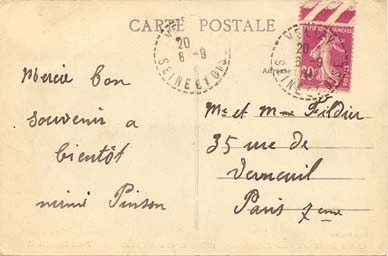 CARTE POSTALE
20
6 - 9
SEINE ET OISE
Adresse
20
6 - 9
Mercie bon
souvenir a
bientôt
mimi Pinson
Mr et Mme Fildier
35 rue de
Verneuil
Paris 7eme